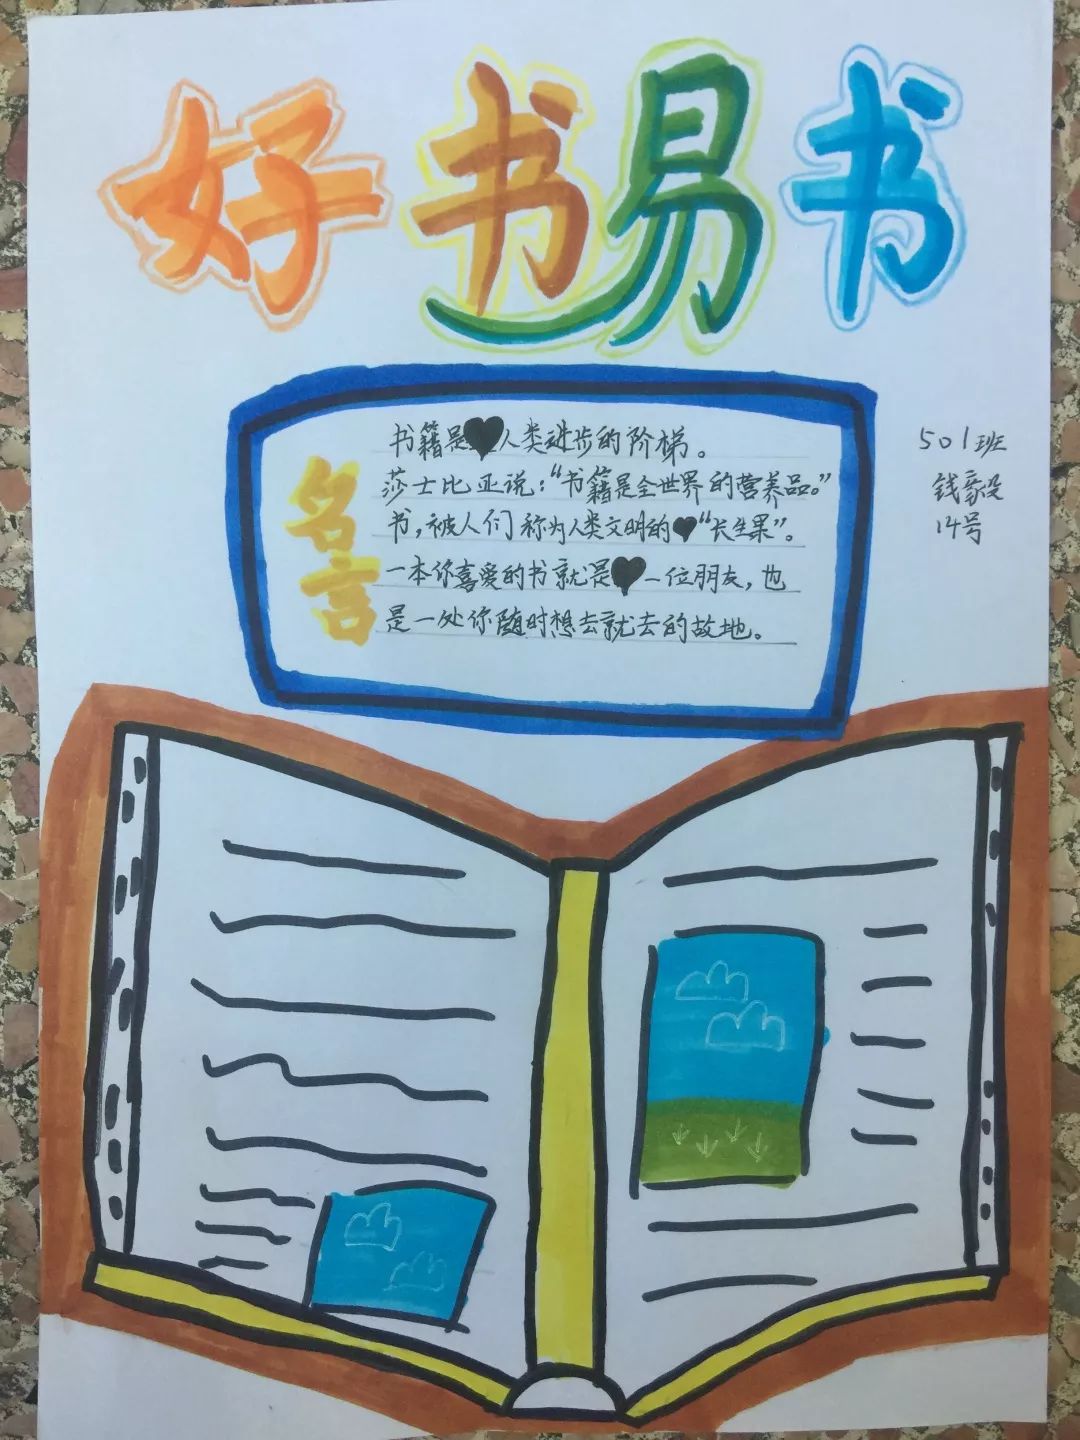 好书易书
名言
书籍是人类进步的阶梯。
莎士比亚说：“书籍是全世界的营养品。”
书，被人们称为人类文明的“长生果”。
一本你喜爱的书就是一位朋友，也
是一处你随时想去就去的故地。
501班
钱毅
14号